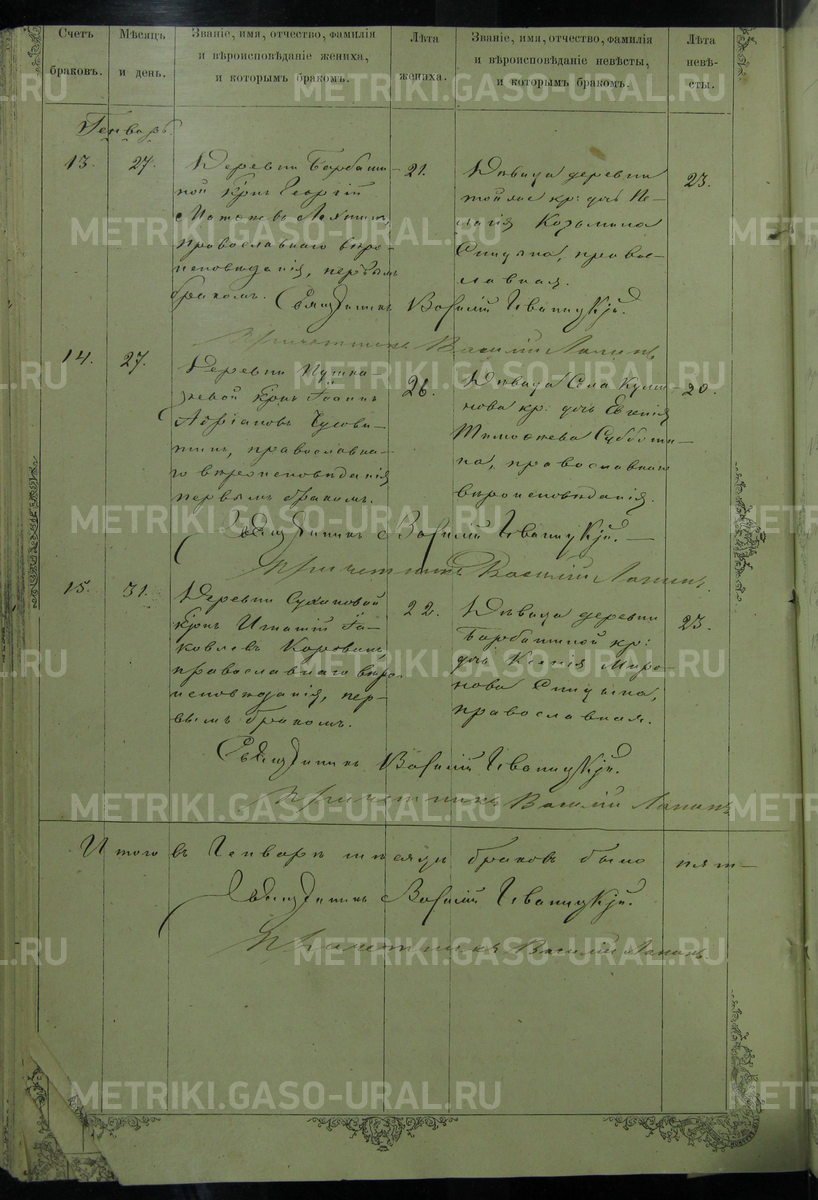 Счетъ браковъ.
Мѣсяцъ и день.
Званіе, имя, отчество, фамилія
и вѣроисповѣданіе жениха,
и которымъ бракомъ.
Лѣта жениха.
Званіе, имя, отчество, фамилія
и вѣроисповѣданіе невѣсты,
и которымъ бракомъ.
Лѣта невѣ-
сты.
METRIKI.GASO-URAL.RU
Генварь.
13.
27.
Деревни Барбаши-
ной Крнъ Георгій
православнаго вѣро-
исповѣданія, первымъ
бракомъ.
21.
Дѣвица деревни
тойже кр: дочь Пе-
лагія Козьмина
Спицына, правос-
лавная.
23.
Священникъ Василій Иваницкій.
Причетникъ Василій Лапинъ
14.
27.
Деревни Пушка-
ревой Крнъ Іоаннъ
Адріановъ Чусови-
тинъ, православна-
го вѣроисповѣданія
первымъ бракомъ.
26.
Дѣвица Села
кр: дочь Евгенія
Тимофеева Субботи-
на, православнаго
вѣроисповѣданія.
20.
Священникъ Василій Иваницкій.
Причетникъ Василій Лапинъ.
15.
31.
Деревни Сухановой
Крнъ Игнатій Іа-
ковлевъ
православнаго вѣро-
исповѣданія, пер-
вымъ бракомъ.
22.
Дѣвица деревни
Барбашиной кр:
дочь Ксенія Миро-
нова Спицына,
православная.
23.
Священникъ Василій Иваницкій.
Причетникъ Василій Лапинъ
Итого въ Генварѣ мѣсяцѣ браковъ было пят-
Священникъ Василій Иваницкій.
Причетникъ Василій Лапинъ.